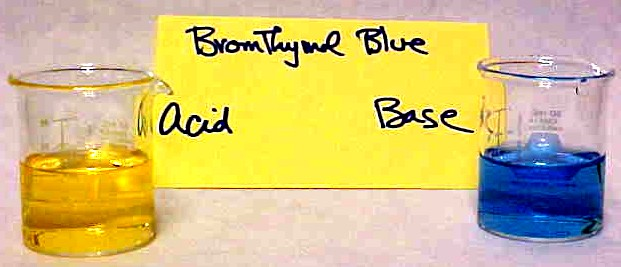 BromThymol Blue
Acid
Base